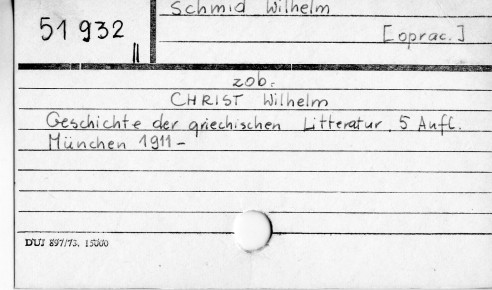 Schmid Wilhelm
51 932
II
[oprac.]
zob.
CHRIST Wilhelm
Geschichte der griechischen Litteratur. 5 Aufl.
München 1911 -
DUJ 897/73. 15000